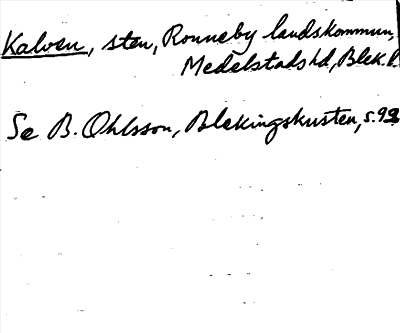 Kalven, sten, Ronneby landskommun,
Medelstads hd, Blek. l.
Se B. Ohlsson, Blekingskusten, s. 93